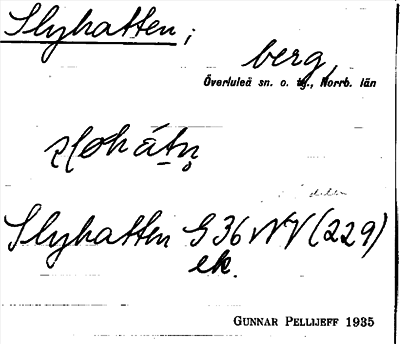 Slyhatten;
berg,
Överluleå sn. o. tg., Norrb. län
Slyhatten G 36 NV (229)
ek.
GUNNAR PELLIJEFF 1935